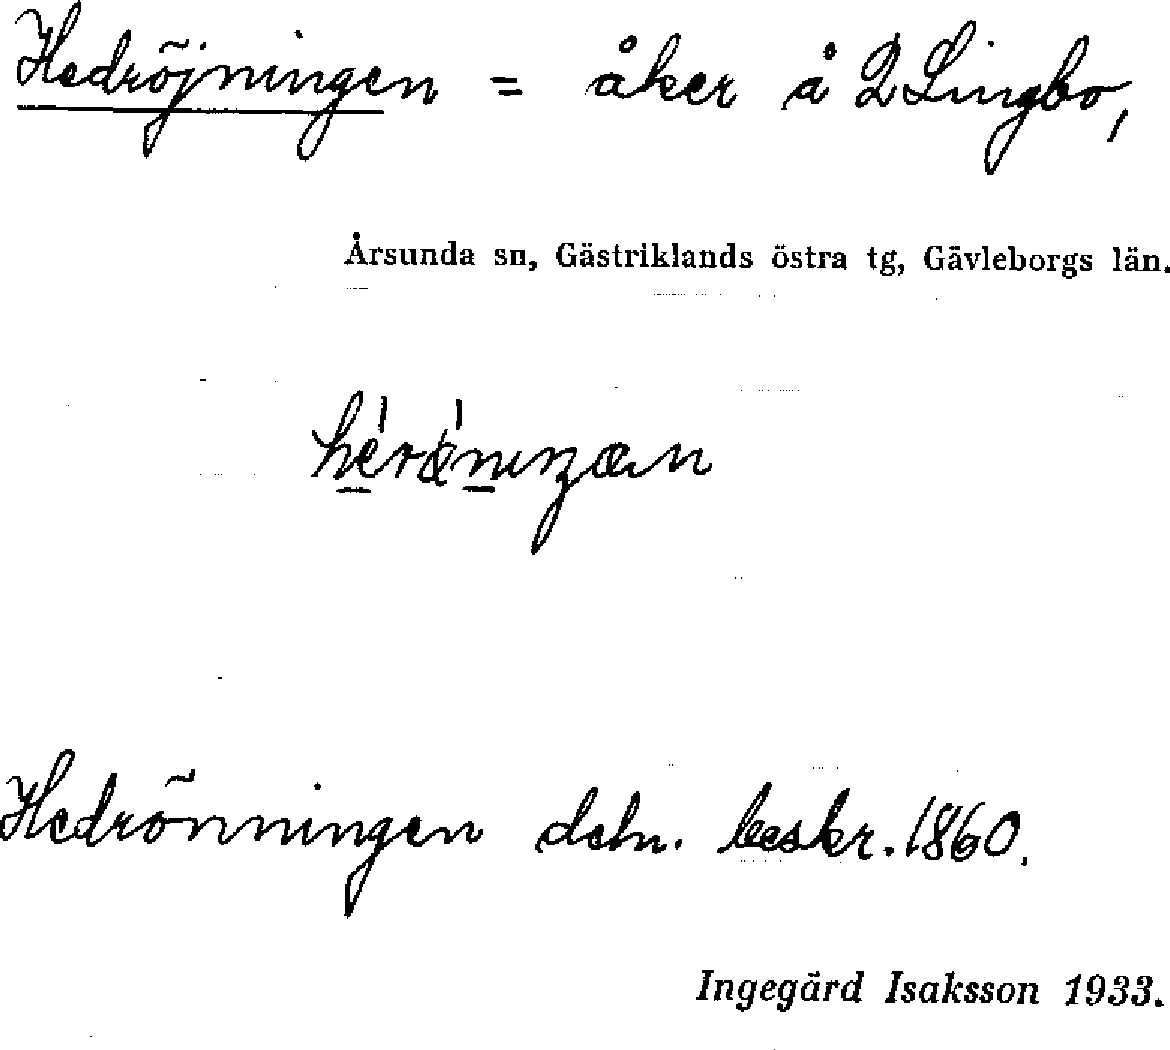 Hedröjningen = åker å 2 Lingbo,
Årsunda sn, Gästriklands östra tg, Gävleborgs län.
Hedrönningen deln. beskr. 1860.
Ingegärd Isaksson 1933.